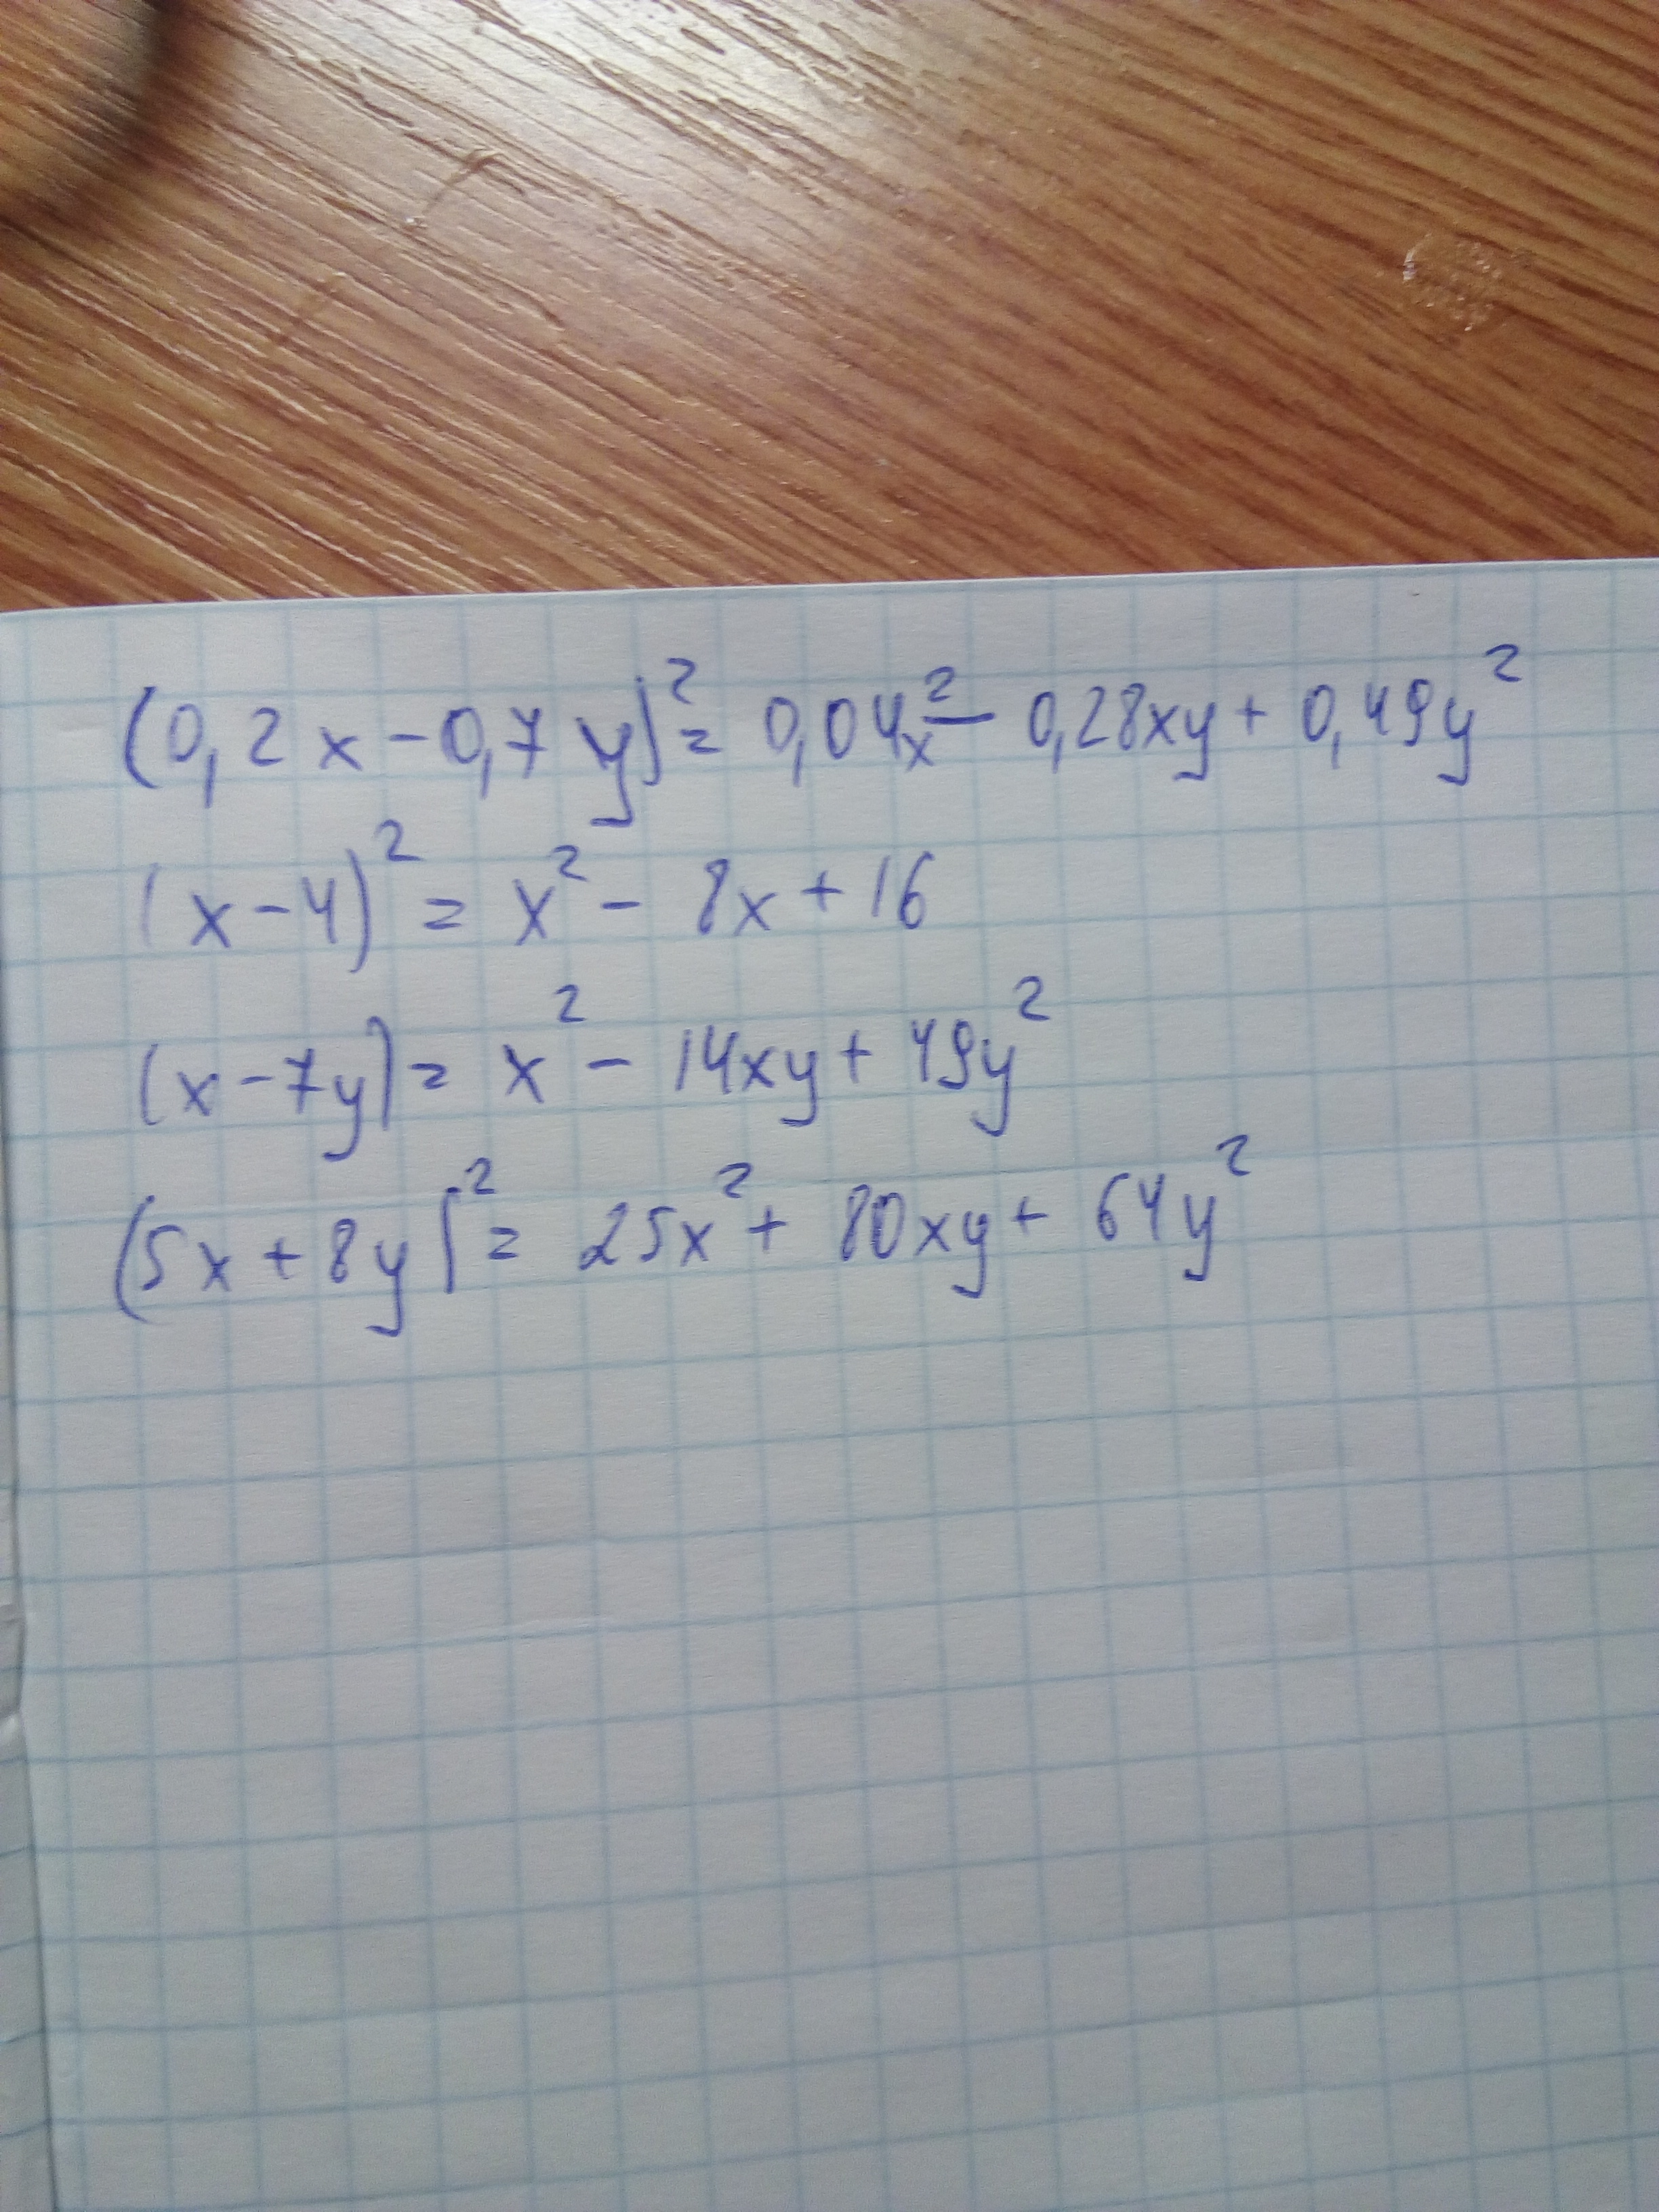 (0,2x-0,7y)²= 0,04x²- 0,28xy+ 0,49y²
(x-4)² = x² - 8x + 16
(x-7y)= x² - 14xy+ 49y²
(5x+8y)²= 25x²+ 80xy+ 64y²